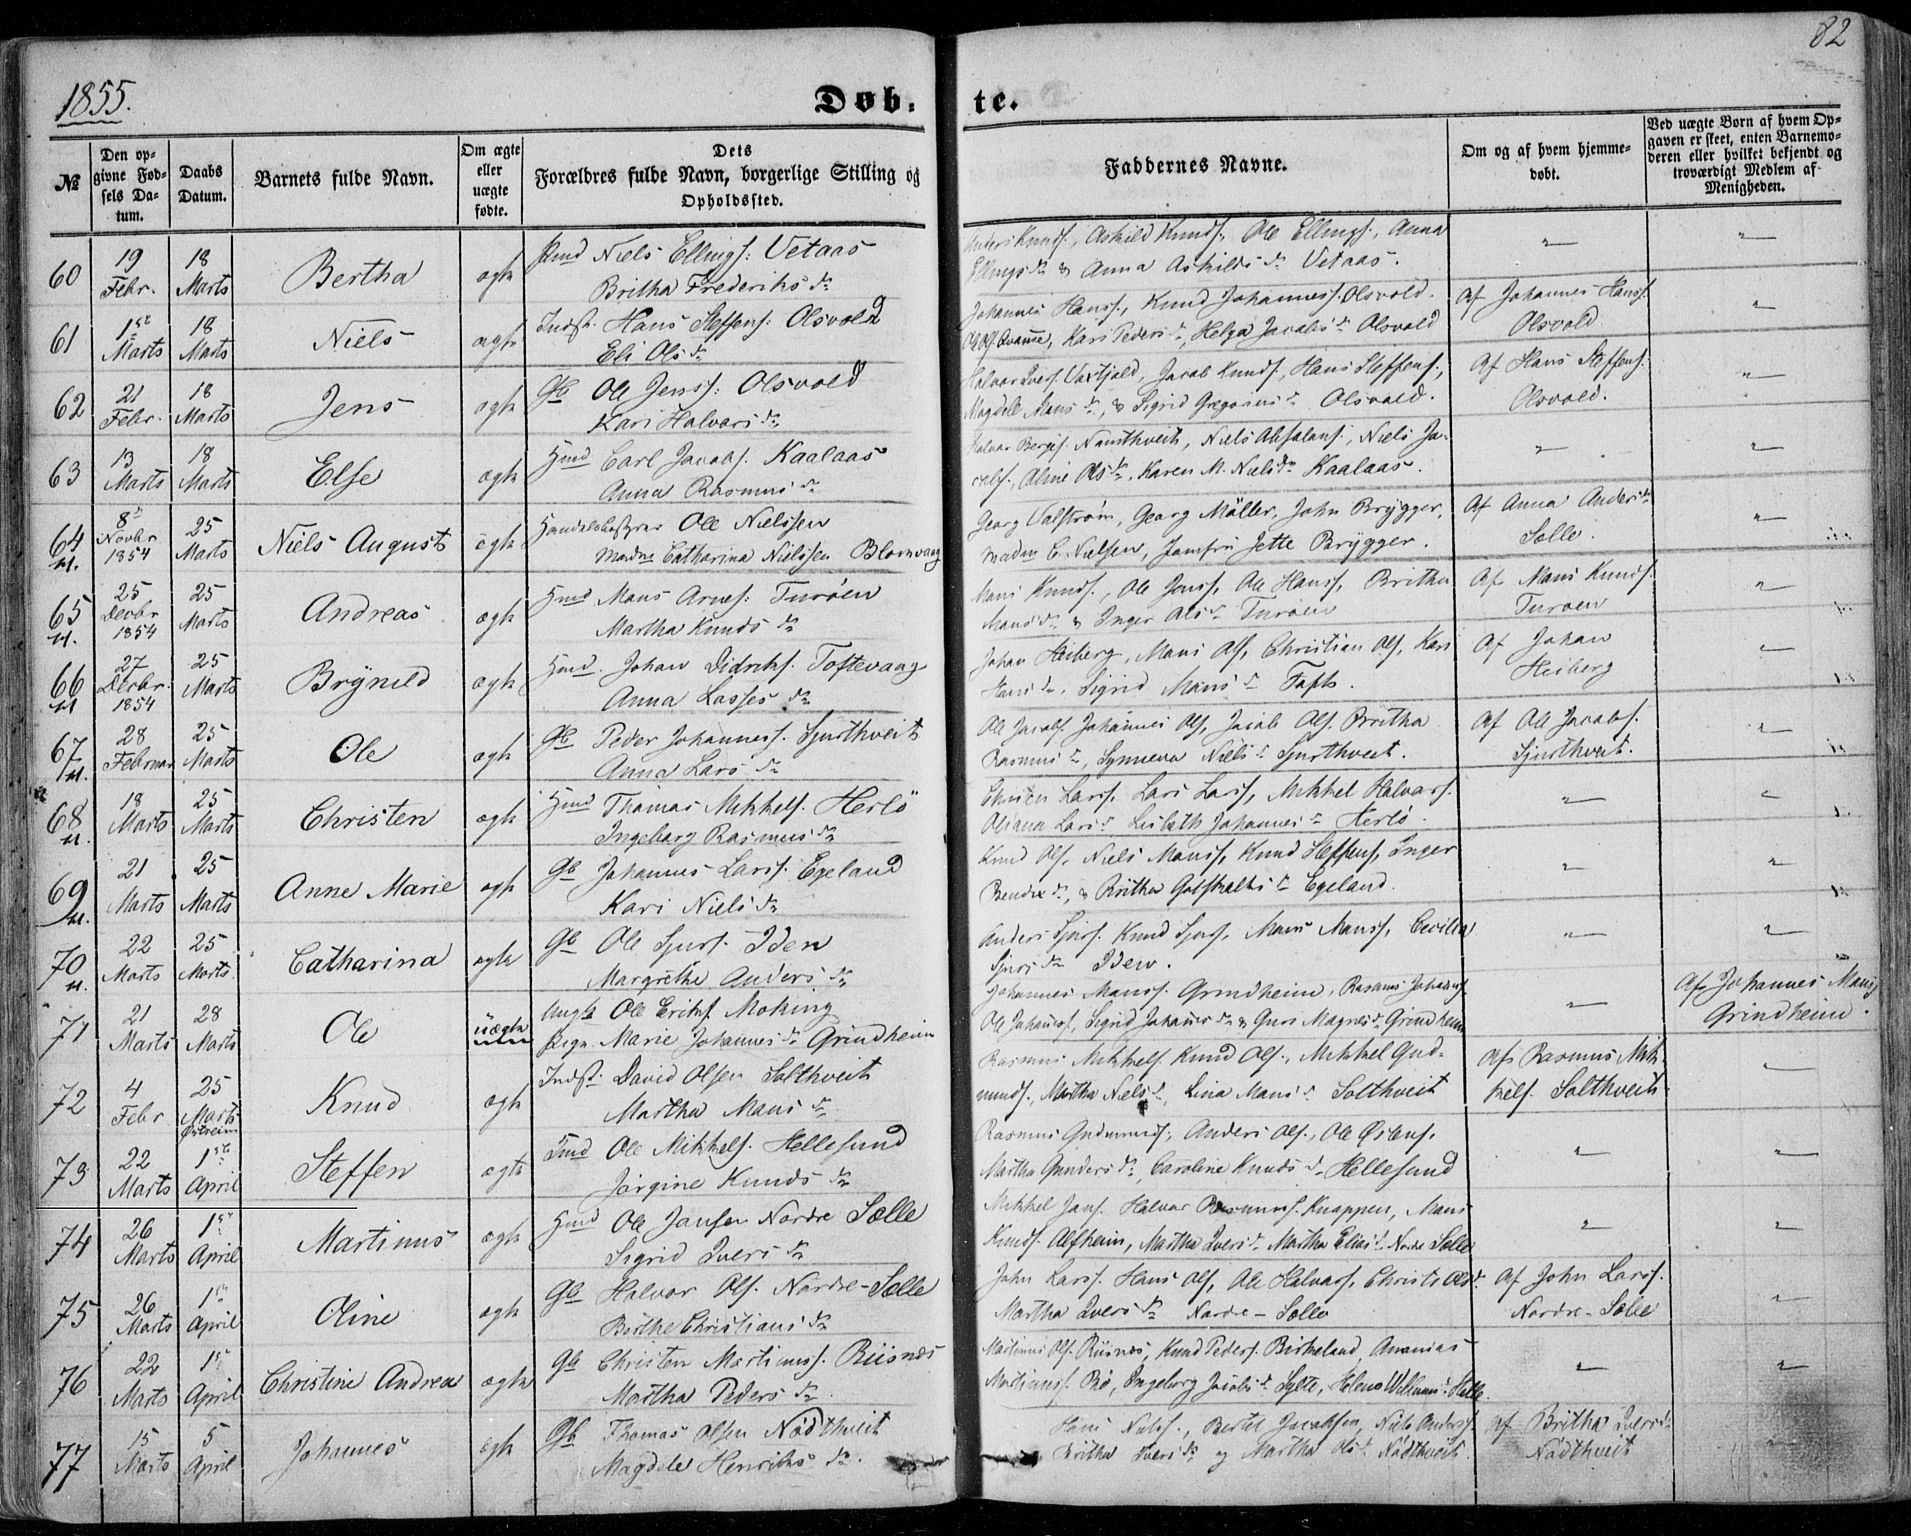 1855.
82
Døb-
te.
№
Den op-
givne Fød-
sels Da-
tum.
Daabs
Datum.
Barnets fulde Navn.
Om ægte
eller
uægte
fødte.
Dets
Forældres fulde Navn, borgerlige Stilling og
Opholdssted.
Faddernes Navne.
Om og af hvem hjemme-
døbt.
Ved uægte Børn af hvem Op-
gaven er skeet, enten Barnemo-
deren eller hvilket bekjendt og
troværdigt Medlem af
Menigheden.
60
19
Febr.
18
Marts
Bertha
ægte
Niels Ellings: Vetaas
Britha Frederiks dr
Anders Knuds., Askild Knuds., Ole Ellings., Anna
Ellings dr & Anna Askilds dr Vetaas.
61
1st
Marts
18
Marts
Niels
ægte
Indst. Hans Steffens: Olsvold
Eli Ols dr
Johannes Hanss., Knud Johanness. Olsvold.
Kari Peders dr, Helga Jacobs dr Olsvold
Af Johannes Hanss.
Olsvold.
62
21
Febr.
18
Marts
Jens
ægte
Gb Ole Jenss: Olsvold
Kari Halvors dr
Halvor Ivers., Jacob Knuds., Hans Steffens.,
Magdele Mans dr, & Sigrid Gregorius dr Olsvold.
Af Hans Steffens.
Olsvold.
63
13
Marts
18
Marts
Else
ægte
Hmd Carl Jacobs. Kaalaas
Anna Rasmus dr
Halvor Berges. Namthveit, Niels Absalons., Niels Ja-
cobs., Aline Ols dr, Karen M. Niels dr Kaalaas.
64
8de
Novbr
1854
25
Marts
Niels August
ægte
Ole Nielssen
Madme Catharina Nielssen Blomvaag
Georg Valstrøm, Georg Møller, John Brygger,
Madm C. Nielsen, Jomfru Jette Brygger.
Af Anna Anders dr
Solle.
65
25
Decbr
1854
25
Marts
Andreas
ægte
Hmd Mons Arnes: Turøen
Martha Knuds dr
Mans Knuds., Ole Jenss., Ole Hanss., Britha
Mans dr & Inger Ols dr Turøen
Af Mans Knuds.
Turøen
66
27
Decbr.
1854
25
Marts
Brynild
ægte
Hmd. Johan Didriks. Toftevaag
Anna Lasses dr
Johan Heiberg, Mans Ols., Christian Ols., Kari
Hans dr, Sigrid Mans dr Toft.
Af Johan
Heiberg
67
28
Februar
25
Marts
Ole
ægte
Gb Peder Johanness. Sjurthveit
Anna Lars dr
Ole Jacobs. Johannes Ols., Jacob Ols. Britha
Rasmus dr, Synneva Niels dr Sjurthveit.
Af Ole Jacobs.
Sjurthveit.
68
18
Marts
25
Marts
Christen
ægte
Hmd Thomas Mikkels. Herlö
Ingeborg Rasmus dr
Christen Larss. Lars Larss., Mikkel Halvors.
Oliana Lars dr Lisbeth Johannes dr Herlö.
69
21
Marts
25
Marts
Anne Marie
ægte
Gb Johannes Larss. Egeland
Kari Niels dr
Knud Ols., Niels Manss., Knud Steffens, Inger
& Britha Gotskalks dr Egeland.
70
22
Marts
25
Marts.
Catharina
ægte
Gb Ole Sjurs. Iden
Margrethe Anders dr
Anders Sjurs. Knud Sjurs., Mans Manss., Cecilia
Sjurs dr Iden.
71
21
Marts
28
Marts
Ole
uægte
Ungk Ole Eriks. Moking
Pige Marie Johannes dr Grindheim
Johannes Manss. Grindheim, Rasmus Johanns.
Ole Johanns., Sigrid Johans dr & Guri Magnes dr Grindheim
Af Johannes Manss.
Grindheim.
72
4
Febr
25
Marts
Knud
ægte
Indst. David Olsen Solthveit
Martha Mans dr
Rasmus Mikkels. Knud Ols., Mikkel Gud-
munds., Martha Niels dr, Lina Mans dr Solthveit
Af Rasmus Mik-
kels. Solthveit
73
22
Marts
1ste
April
Steffen
ægte
Ole Mikkels. Hellesund
Jørgine Knuds dr
Rasmus Gudmunds., Anders Ols., Ole
Martha Gunders dr, Caroline Knuds dr Hellesund
74
26
Marts
1ste
April
Martinus
ægte
Hmd Ole Jansen Nordre Sælle
Sigrid Ivers dr
Mikkel Jans. Halvor Rasmuss. Knappen, Mans
Knuds. Alfheim, Martha Ivers dr Martha Elias dr Nordre Sælle
75
26
Marts
1ste
April
Oline
ægte
Gb Halvor Ols. Nordre-Sælle
Birthe Christians dr
John Larss. Hans Ols., Ole Halvors., Christi Ols dr
Martha Ivers dr Nordre-Sælle
Af John Larss.
Nordre-Sælle
76
22
Marts
1ste
April
Christine Andrea
ægte
Gb Christen Martinuss. Riisnes
Martha Peders dr
Martinus Ols. Riisnes, Knud Peders. Birkeland, Ananias
Martinuss. Bø, Ingeborg Jacobs dr Sylte, Helena Willums dr Helle.
77
15
Marts
5
April
Johannes
ægte
Gb Thomas Olsen Nödthveit
Magdele Henriks dr.
Hans Nielss., Bertel Jacobsen, Niels Anderss.
Britha Ivers dr og Martha Ols dr Nödthveit.
Af Britha Ivers dr
Nödthveit